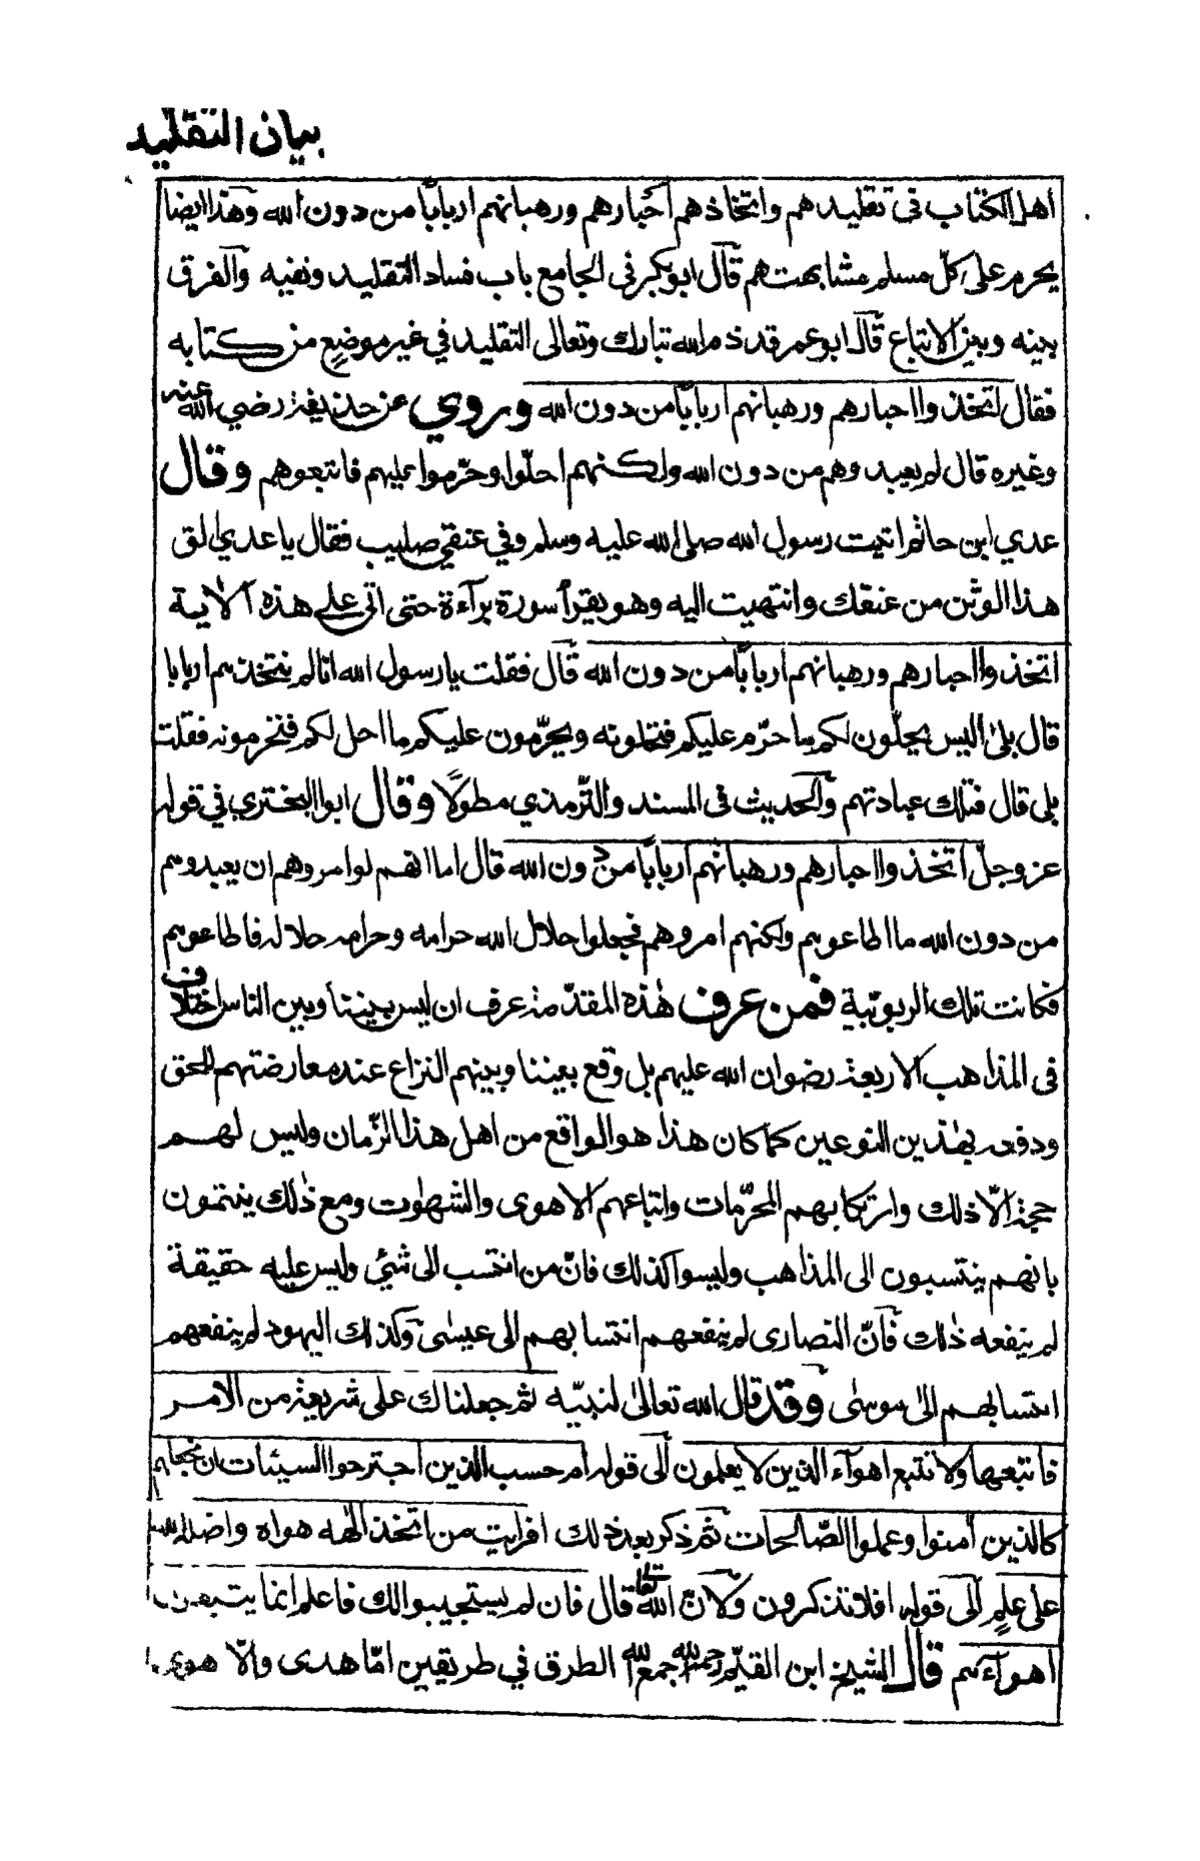 بيان التقليد
أهل الكتاب في تقليدهم واتخاذهم أحبارهم ورهبانهم اربابًا من دون الله وهذا ايضا
يحرم على كلّ مسلم مشابهتهم قال ابو بكر في الجامع باب فساد التقليد ونفيه والفرق
بينه وبين الاتباع قال ابو عمر قد ذم الله تبارك وتعالى التقليد في غير موضع من كتابه
فقال اتخذوا احبارهم ورهبانهم اربابًا من دون الله وروي عن حذيفة رضي الله عنه
وغيره قال لم يعبدوهم من دون الله ولكنهم احلّوا وحرّموا عليهم فاتبعوهم وقال
عدي ابن حاتم اتيت رسول الله صلى الله عليه وسلم وفي عنقي صليب فقال يا عدي الق
هذا الوثن من عنقك وانتهيت اليه وهو يقرأ سورة برآءة حتى اتى على هذه الاية
اتخذوا احبارهم ورهبانهم اربابًا من دون الله قال فقلت يا رسول الله انا لم نتخذهم اربابا
قال بلى اليس يحلّون لكم ما حرّم عليكم فتحلونه ويحرّمون عليكم ما احل لكم فتحرمونه فقلت
بلى قال فتلك عبادتهم والحديث في المسند والترّمذي مطولًا وقال ابو البختري في قوله
عز وجلّ اتخذوا احبارهم ورهبانهم اربابًا من دون الله قال اما انهم لو امروهم ان يعبدوهم
من دون الله ما اطاعوهم ولكنهم امروهم فجعلوا حلال الله حرامه وحرامه حلاله فاطاعوهم
فكانت تلك الربوبّية فمن عرف هذه المقدّمة عرف ان ليس بيننا وبين الناس اختلاف
في المذاهب الاربعة رضوان الله عليهم بل وقع بيننا وبينهم النزاع عند معارضتهم للحق
ودفعه بهذين النوعين كما كان هذا هو الواقع من اهل هذا الزّمان وليس لهم
حجة الّا ذلك وارتكابهم المحرّمات واتباعهم الاهوى والشهوات ومع ذلك ينتمون
بانهم ينتسبون الى المذاهب وليسوا كذلك فانّ من انتسب الى شئ وليس عليه حقيقة
لم ينفعه ذلك فانّ النصارى لم ينفعهم انتسابهم الى عيسى وكذلك اليهود لم ينفعهم
انتسابهم الى موسى وقد قال الله تعالى لنبيّه ثم جعلناك على شريعة من الامر
فاتبعها ولا تتبع اهوآء الذين لا يعلمون الى قوله ام حسب الذين اجترحوا السيئات ان نجعلهم
كالذين آمنوا وعملوا الصّالحات ثم ذكر بعد ذلك افرايت من اتخذ الهه هواه واضله الله
على علم الى قوله افلا تذكرون ولانّ الله تعالى قال فان لم يستجيبوا لك فاعلم انما يتبعون
اهوآءهم قال الشيخ ابن القيّم رحمه الله جمع الله الطرق في طريقين امّا هدى والّا هوى